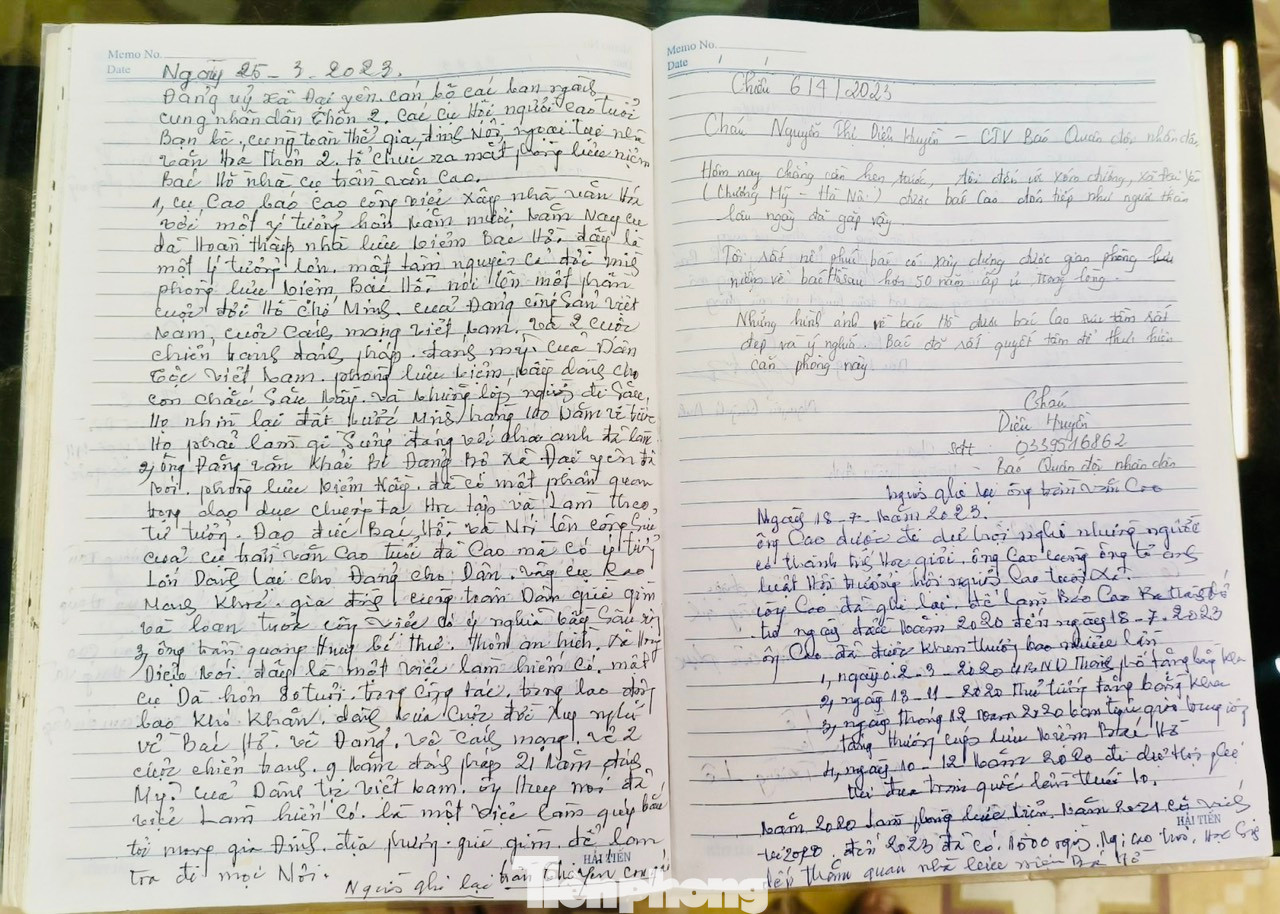 Memo No.
Date
Ngày 25-3-2023.
Đảng uỷ xã Đại yên. cán bộ các ban ngành
cung nhân dân thôn 2. các cụ Hội người cao tuổi
Bạn bè, cung toàn thể gia, đình Nội, ngoại tại nhà
văn Hoá Thôn 2. tổ chức ra mắt phòng lưu niệm
Bác Hồ nhà cụ trần văn Cao.
1, cụ Cao báo cao công việc xây nhà văn Hoá
với một ý tưởng hơn năm mươi năm Nay cụ
đã Hoàn thành nhà lưu niệm Bác Hồ, đây là
một lý tưởng lớn. một tâm nguyện cả đời mình
phòng lưu niệm Bác Hồ, nói lên một phần
cuộc đời Hồ Chí Minh. cuả Đảng cộng sản Việt
Nam, cuộc Cách mạng việt Nam, và 2 cuộc
chiến tranh đánh pháp. đánh mỹ cuả Dân
tộc việt Nam. phòng lưu niệm, này dành cho
con cháu Sau này. và những lớp người đi Sau,
Họ nhìn lại đất nước Mình hàng 100 năm về trước
Họ phải làm gì Sứng đáng với cha anh đã làm
2, ông Đặng văn Khải Bí Đảng Bộ xã Đại yên đã
nói. phòng lưu niệm này. đã có một phần quan
trọng dao dục chúng ta Học tập và Làm theo,
tư tưởng. Đạo đức Bác Hồ, và Nói lên công Sức
cuả cụ trần văn Cao tuổi đã Cao mà có ý tưởng
Lớn Dành lại cho Đảng cho Dân.
gia đình, cung toàn Dân giữ gìn
3, ông trần quang Hưng bí thư. Thôn an hiền. xã Hoàng
Diệu nói. đây là một việc làm hiếm có, một
cụ Đã hơn 80 tuổi, trong công tác, trong lao động
bao Khó Khăn, của Cuộc đời suy nghĩ
về Bác Hồ. về Đảng, về Cách mạng, về 2
cuộc chiến tranh. 9 năm đánh pháp 21 năm đánh
Mỹ. cuả Dân tộc việt Nam. ông Hưng nói đã
việc Làm hiếm Có. là một việc Làm quý báu
tôi mong gia Đình. địa phương. giữ gìn để lan
tra đi mọi Nơi.
Người ghi lại trần thị yên
HẢI TIẾN
Memo No.
Date
Chiều 6/4/2023
Cháu Nguyễn Thị Diệu Huyền - CTV Báo Quân đội nhân dân
Hôm nay chẳng cần hẹn trước, tôi đến với xóm chùng, xã Đại Yên
(Chương Mỹ - Hà Nội) được bác Cao đón tiếp như người thân
lâu ngày đã gặp vậy.
Tôi rất nể phục bác cố xây dựng được gian phòng lưu
niệm về bác Hồ sau hơn 50 năm ấp ủ trong lòng.
Những hình ảnh về bác Hồ được bác Cao sưu tầm rất
đẹp và ý nghĩa. Bác đã rất quyết tâm để thực hiện
căn phòng này
Cháu
Diệu Huyền
sđt: 0339516862
- Báo Quân đội nhân dân
người ghi lại ông trần văn Cao
Ngày 18-7-năm 2023.
ông Cao được đi dự hội nghị những người
có thành tích Học giỏi. ông Cao cung ông
Hội trưởng hội người Cao tuổi Xã.
ông Cao đã ghi lại, để làm Báo Cao
từ ngày đầu năm 2020 đến ngày 18-7-2023
ông Cao đã được khen thưởng bao nhiêu lần
1, ngày 02-3-2020 UBND Thành phố tặng bằng khen
2, ngày 13-11-2020 Thủ tướng tặng bằng khen
3, ngày tháng 12 năm 2020 ban trung ương
tặng thưởng lưu niệm Bác Hồ
4, ngày 10-12 năm 2020 đi dự Hội nghị
thi đua toàn quốc lần thứ 10.
năm 2020 làm phòng lưu niệm, năm 2021
đến 2023 đã có 1000 người. Học Sinh
đến thăm quan nhà lưu niệm Bác Hồ
HẢI TIẾN
Tienphong